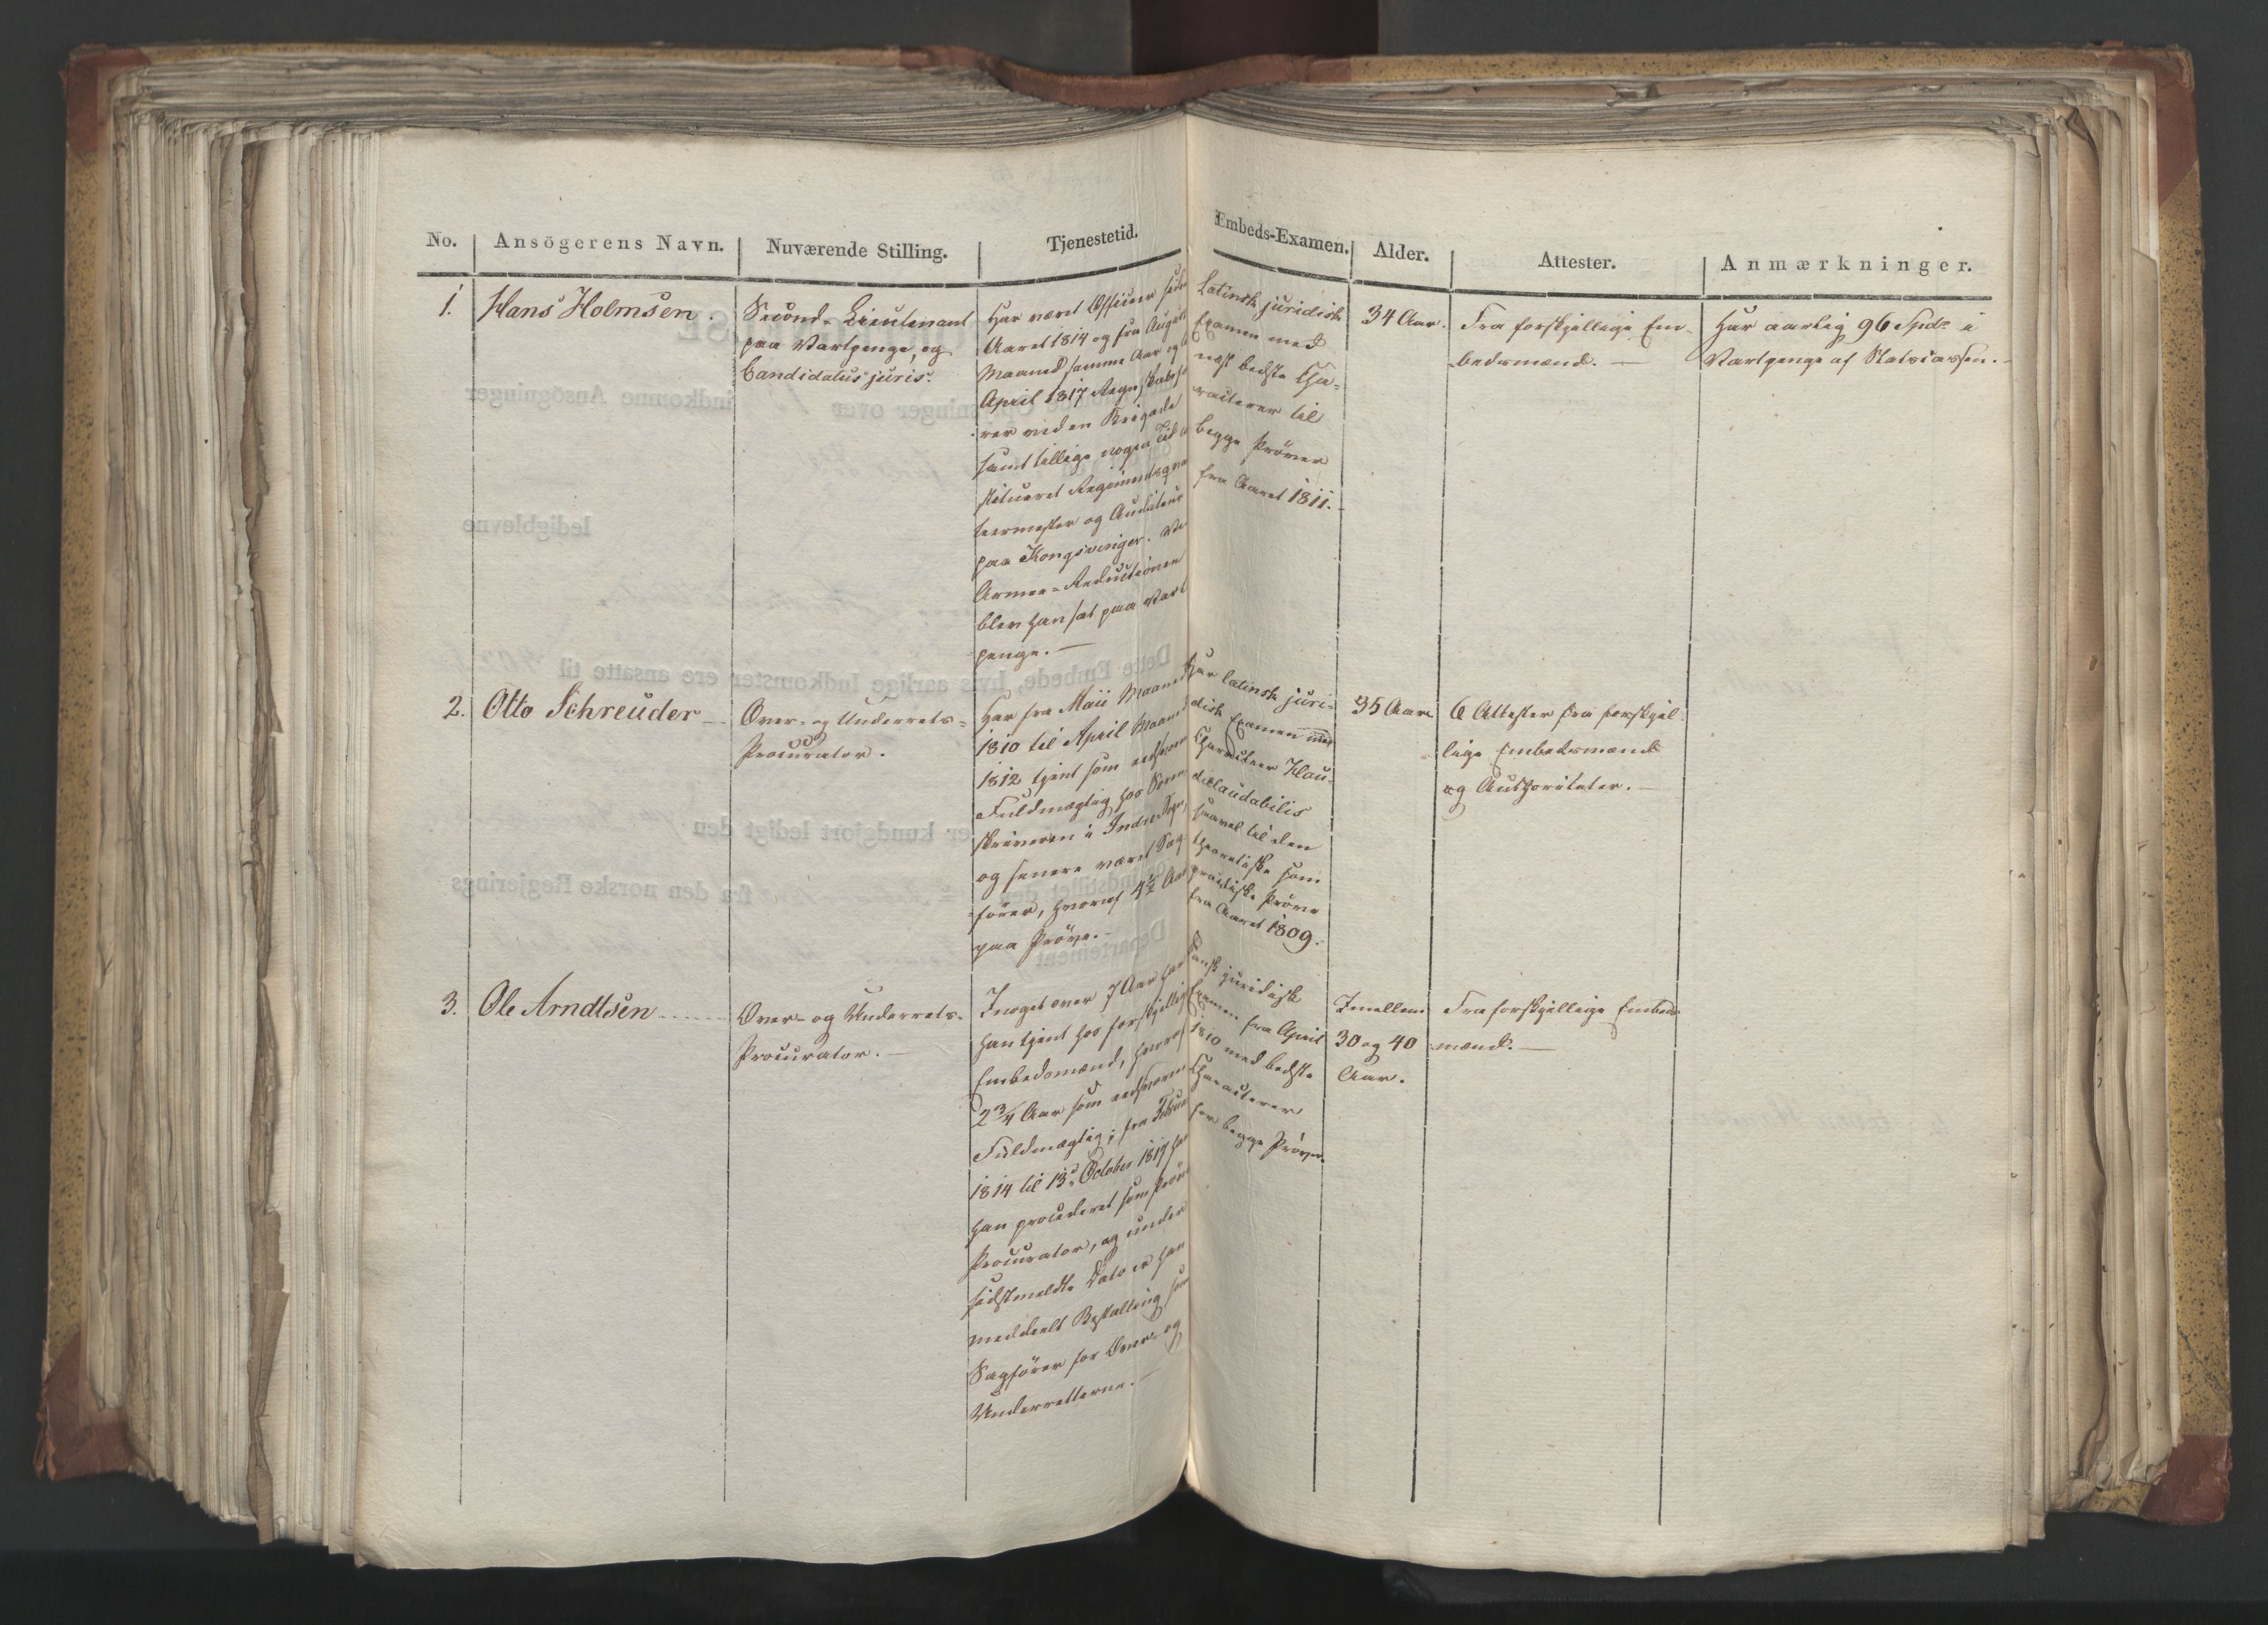 No. Ansögerens Navn. Nuværende Stilling. Tjenestetid. Embeds-Examen. Alder. Attester. Anmærkninger.
1. Hans Holmsen.
Second-Lieutenant
paa Vartpenge, og
Candidatus juris.
Har været Officeer siden
Aaret 1814 og fra August
Maaned samme Aar og til
April 1817 Regnskabsfö-
rer ved en Brigade
samt tillige nogen Tid
stitueret Regimentsqvar
teermester og Auditeur
paa Kongsvinger. Ve
Armee-Reductionen
blev han sat paa Vart
penge.
Latinsk juridisk
Examen med
næst bedste Cha-
racterer til
begge Pröver
fra Aaret 1811.
34 Aar.
Fra forskjellige Em-
bedsmænd.
Har aarlig 96 Spd. i
Vartpenge af Statscassen.
2. Otto Schreuder
Over- og Underrets-
Procurator.
Har fra Maii Maaned
1810 til April Maaned
1812 tjent som eedsvoren
Fuldmægtig hos Soren
skriveren i Indre Sogn,
og senere været Sag-
förer, hvoraf 4½ Aar
paa Pröve.
Har latinsk juri-
disk Examen med
Characteer Hau
dillaudabilis
saavel til den
theoretiske som
practiske Pröve
fra Aaret 1809.
35 Aar.
6 Attester fra forskjel-
lige Embedsmænd
og Authoriteter.
3. Ole Arndtsen
Over- og Underrets-
Procurator.
I noget over 7 Aar har
han tjent hos forskjellige
Embedsmænd, hvoraf
2¾ Aar som eedsvoren
Fuldmægtig; fra Februar
1814 til 13de October 1817 har
han procederet som Pröve
Procurator, og under
sidstmeldte Dato er han
meddeelt Bestalling som
Sagförer for Over- og
Underretterne.
Dansk juridisk
Examen fra April
1810 med bedste
Characterer
for begge Pröver.
Imellem
30 og 40
Aar.
Fra forskjellige Embeds-
mænd.